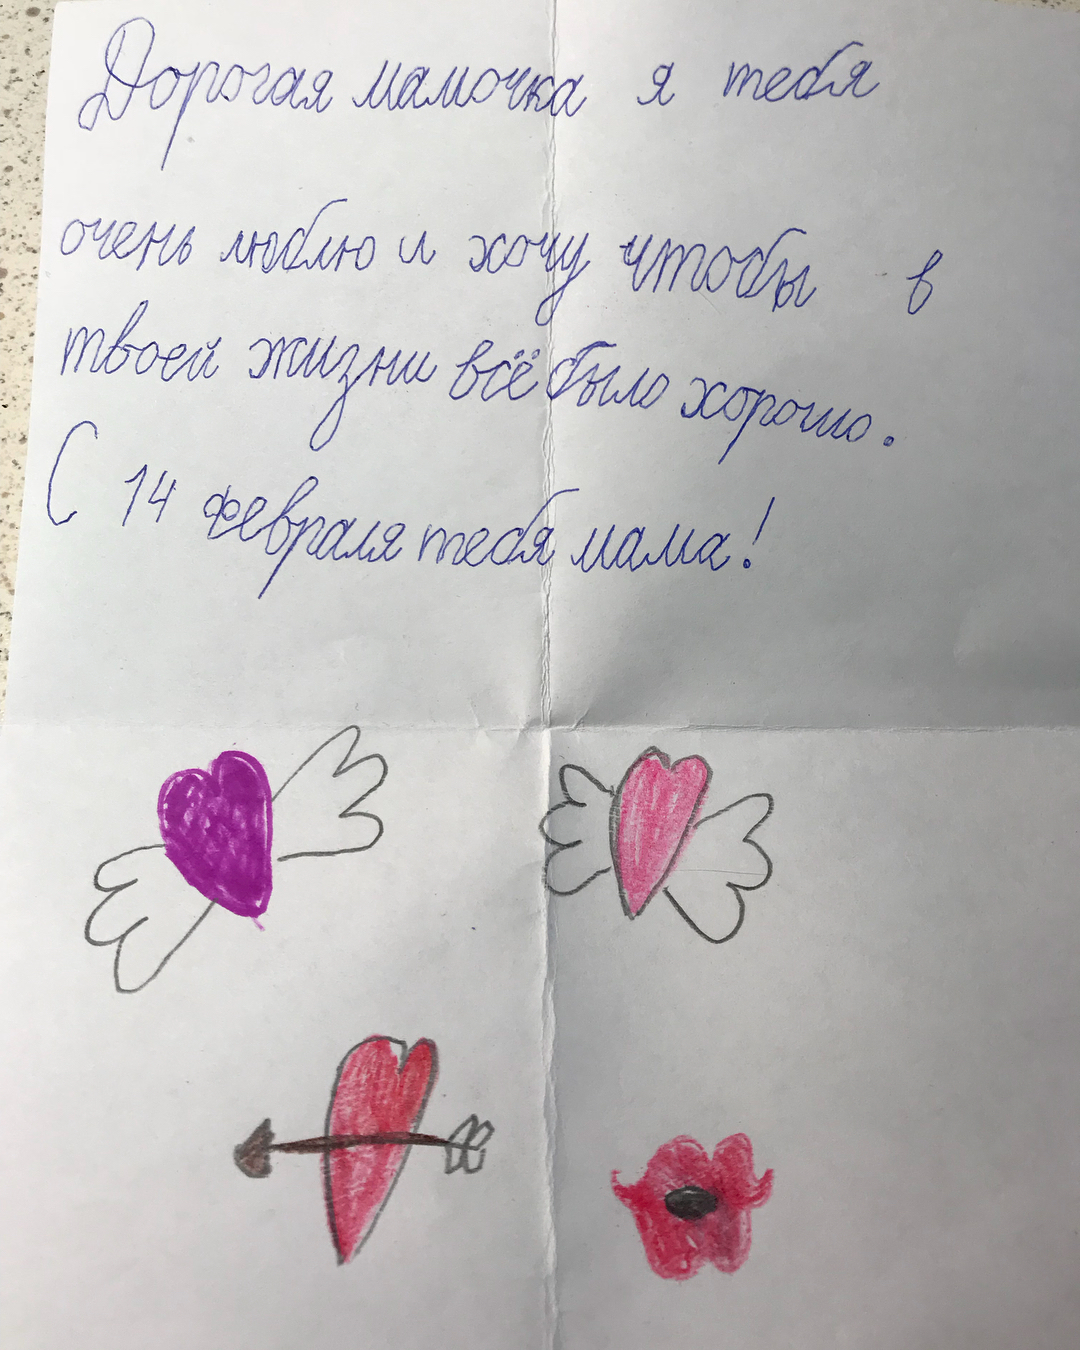 Дорогая мамочка я тебя
очень люблю и хочу чтобы в
твоей жизни всё было хорошо.
С 14 февраля тебя мама!